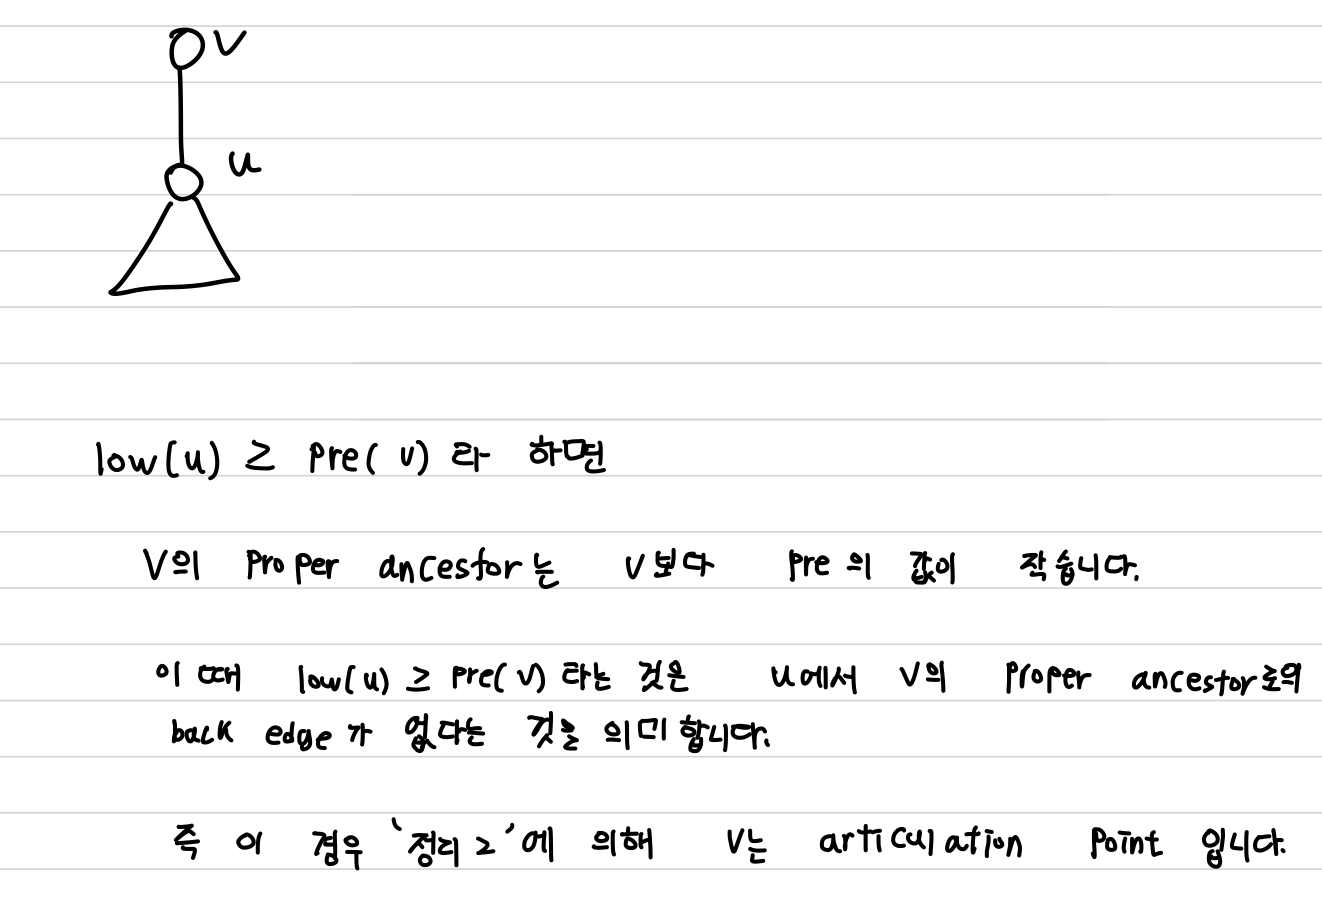 v
u
low(u) ≥ pre(v) 라 하면
v의 proper ancestor는 v보다 pre의 값이 작습니다.
이 때 low(u) ≥ pre(v) 라는 것은 u에서 v의 proper ancestor로의
back edge가 없다는 것을 의미합니다.
즉 이 경우 '정리 2'에 의해 v는 articulation point 입니다.